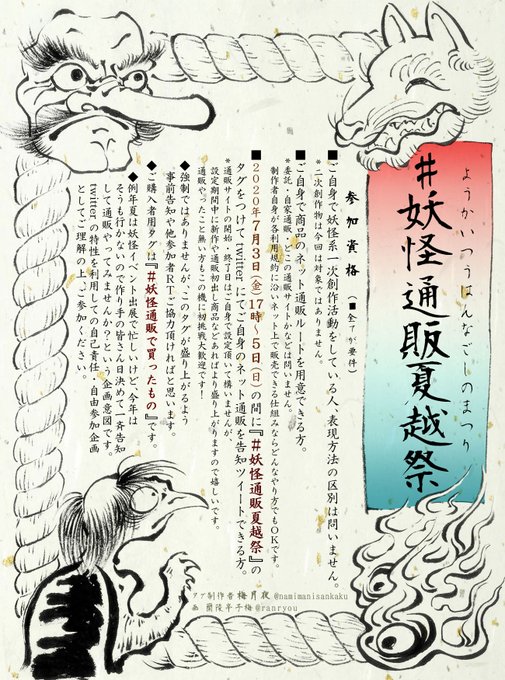 #妖怪通販夏越祭
ようかいつうはんなごしのまつり
参加資格（■全てが要件）
■ご自身で妖怪系一次創作活動をしている人、表現方法の区別は問いません。
*二次創作物は今回は対象ではありません。
■ご自身で商品のネット通販ルートを用意できる方。
*委託・自家通販・どこの通販サイトかなどは問いません。
制作者自身が各利用規約に沿いネット上で販売できる仕組みならどんなやり方でもOKです。
■2020年7月3日(金)17時〜5日(日)の間に『#妖怪通販夏越祭』の
タグをつけて、twitterにてご自身のネット通販を告知ツイートできる方。
*通販サイトの開始・終了日はご自身で設定頂いて構いませんが、
設定期間中に新作や通販初出し商品などあればより盛り上がりますので嬉しいです。
通販やったこと無い方もこの機に初挑戦大歓迎です！
◆強制ではありませんが、このタグが盛り上がるよう
事前告知や他参加者RTご協力頂ければと思います。
◆ご購入者用タグは『#妖怪通販で買ったもの』です。
◆例年夏は妖怪イベント出展で忙しいけど、今年は
そうも行かないので作り手の皆さん日決めて一斉告知
して通販やってみませんか？という企画意図です。
twitterの特性を利用しての自己責任・自由参加企画
としてご理解の上、ご参加ください。
タブ制作者 梅月夜 @namimanisankaku
画 蘭陵亭子梅 @ranryou